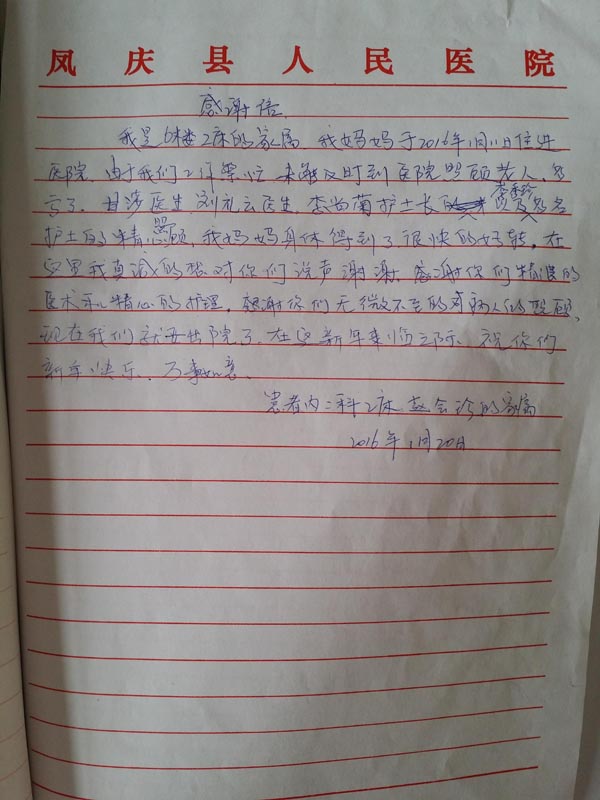 凤庆县人民医院
感谢信
我是6楼2床的家属 我妈妈于2016年1月11日住进
医院,由于我们工作繁忙 未能及时到医院照顾老人,多
亏了,甘莎医生 刘礼云医生 李尚菊护士长 李季珍
护士的精心照顾,我妈妈身体得到了很快的好转,在
这里我真诚的想对你们说声谢谢 感谢你们精湛的
医术和精心的护理,感谢你们无微不至的对病人的照顾,
现在我们就要出院了,在这新年来临之际 祝你们
新年快乐,万事如意
患者内二科2床 赵会珍的家属
2016年1月20日